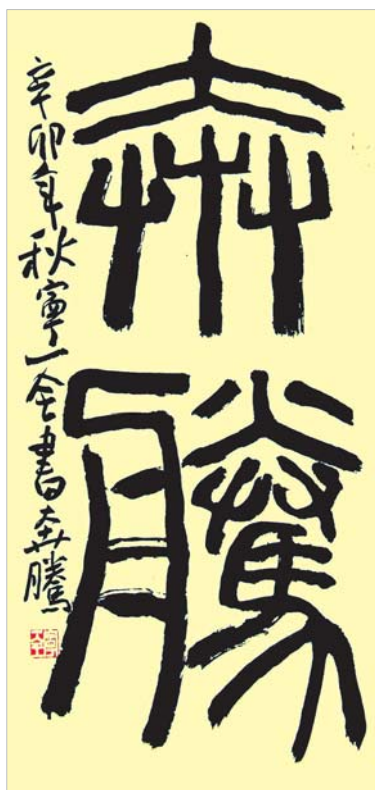 奔騰
辛卯年秋寧一全書奔騰